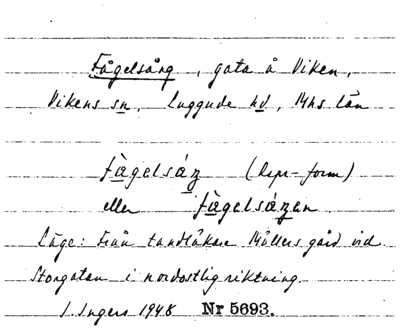 Fågelsång, gata å Viken,
Vikens sn, Luggude hd, Mhs län
fägelsáŋ (Repr-form)
eller fägelsáŋen
Läge: Från tandläkare Möllers gård vid
Storgatan i nordostlig riktning.
I. Ingers 1948 Nr 5693.